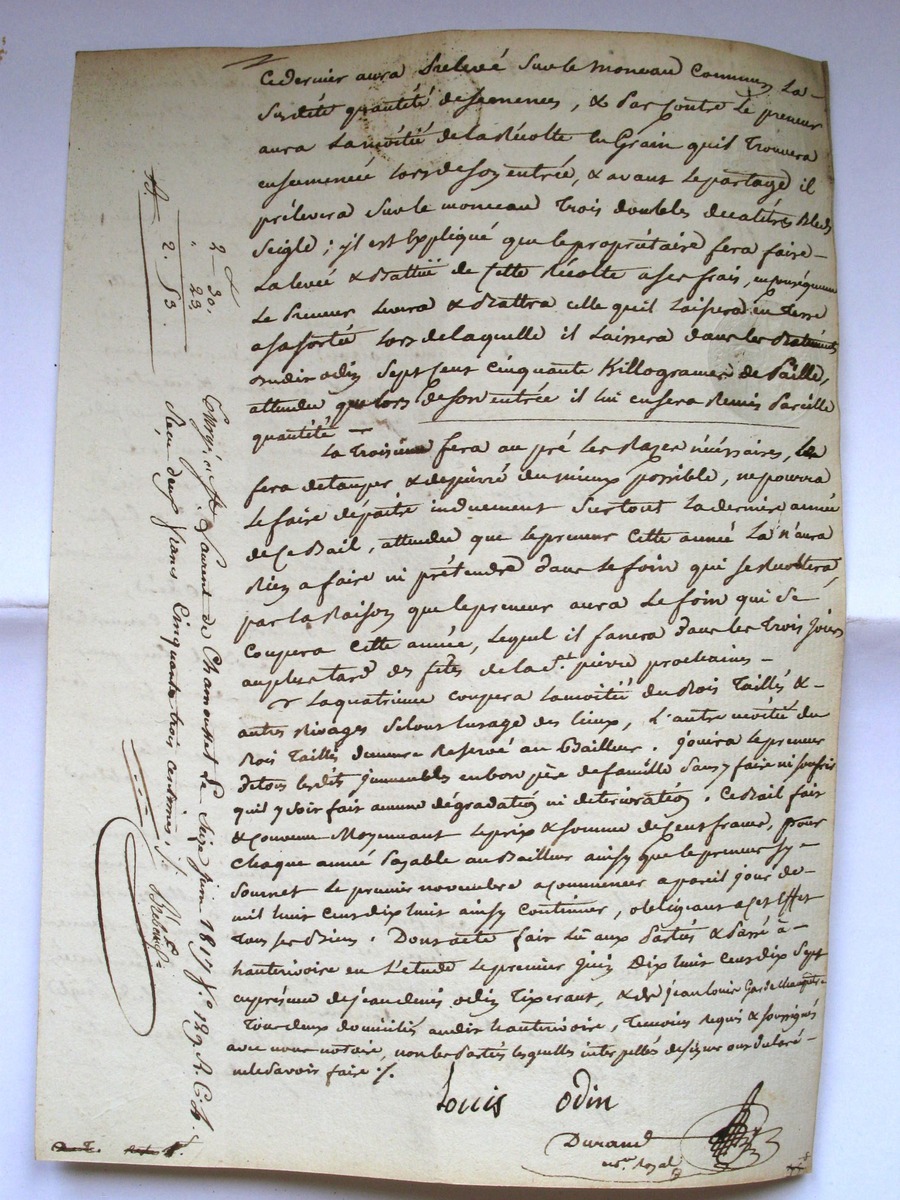 Ce dernier aura prelevé sur le monceau commun la
susdite quantité de semences, & par contre le preneur
aura la moitié de la Récolte en Grain quil trouvera
ensemencé lors de son entrée, & avant le partage il
prélevera sur le monceau trois doubles decalitres bled
Seigle ; il est Expliqué que le propriétaire fera faire
la levée & de Cette Récolte a ses frais, en conséquence
Le Preneur levera & Battra celle qu'il laissera en terre
a sa sortie Lors de laquelle il laissera dans les Batiments
dudit odin Sept Cent Cinquante Killogrames de Paille,
attendu que lors de son entrée il lui en sera Remis Pareille
quantité
La troisieme fera au pré les Razes nécessaires, le
fera detauper & depierré du mieux possible, ne pourra
le faire dépaitre induement surtout la derniere année
de Ce Bail, attendu que le preneur Cette année la n'aura
Rien a faire ni prétendre dans le foin qui se Recoltera,
par la Raison que le preneur aura le foin qui se
Coupera Cette année, lequel il fanera dans les trois Jours
au plus tard des fêtes de la St. pierre prochaines
La quatrieme coupera la moitié du Bois Taillis &
autres Rivages selons lusage des lieux, L'autre moitié du
Bois Taillis demeure Reservé au Bailleur. Jouira le preneur
de tous lesdits immeubles en bon père de famille sans y faire ni souffrir
quil y soit fait aucune dégradation ni deterioration. Ce Bail fait
& Convenu Moyennant le prix & somme de Cent francs, pour
Chaque année payable au Bailleur ainsy que le preneur sy
soumet le premier novembre a commencer a pareil jour de
mil huit cent dix huit ainsy continuer, obligeant a cet Effet
tous ses Biens. Dont acte fait lû aux Parties & Passé à
hauterivoire en l'Etude le premier Juin Dix huit Cent dix Sept
en présence de jean denis odin tixerant, & de Jean louis
tous deux domiciliés audit hauterivoire, temoins Requis & soussignés
avec nous notaire, non les Parties lesquelles interpellés de signer ont declaré
ne le savoir faire ./.
Louis Odin
Durand
no.re Royal
2 — 20.
23.
2. 53.
Enregé. a St. Laurent de Chamousset le Seize juin 1817 f.o 129 R. C. 4.
Recu deux francs Cinquante trois centimes ./.